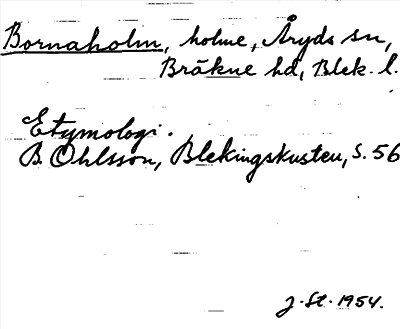 Bornaholm, holme, Åryds sn,
Bräkne hd, Blek. l.
Etymologi.
B. Ohlsson, Blekingskusten, s. 56
J. St. 1954.